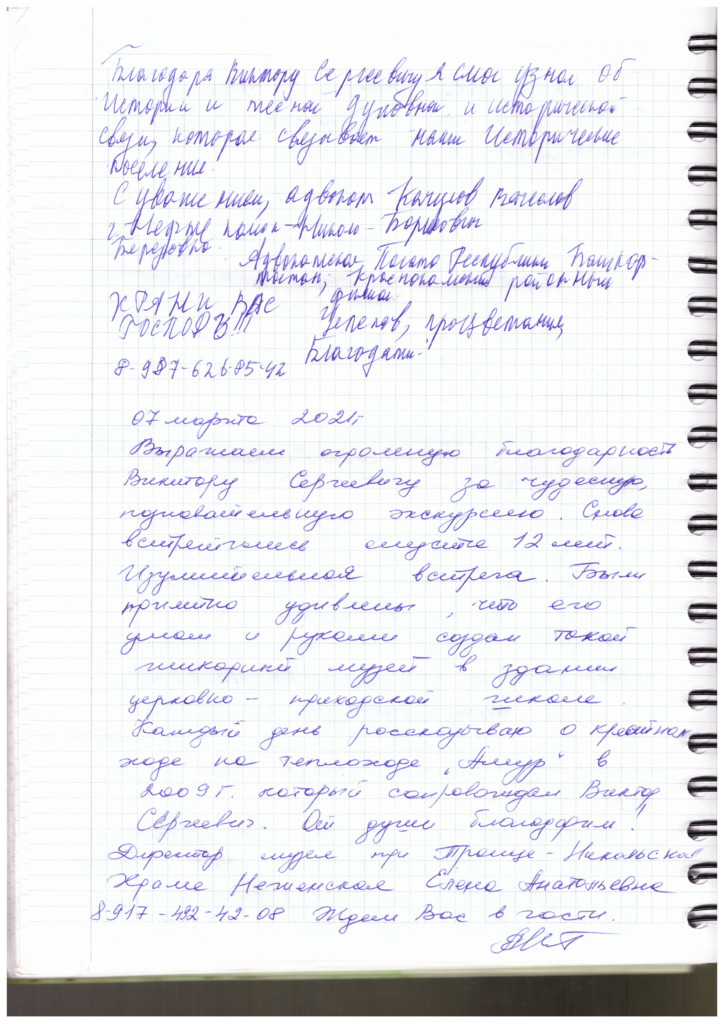 Благодаря Виктору Сергеевичу я смог узнал об
Истории и тесной духовной и исторической
связи, которое связывает наши Исторические
поселение.
С уважением, адвокат
г. Нефте Николо-
Березовка. Адвокатская Палата Республики Башкор-
тостан, Краснокамский районный
ХРАНИ ВАС филиал
ГОСПОДЬ!!! Успехов, процветания,
Благодати!
8-987-626-85-42
07 марта 2021г
Выражаем огромную благодарность
Виктору Сергеевичу за чудесную,
познавательную экскурсию. Снова
встретились спустя 12 лет.
Изумительная встреча. Были
приятно удивлены, что его
умом и руками создан такой
шикарный музей в здании
церковно-приходской школе.
Каждый день рассказываю о крестном
ходе на теплоходе „Амур“ в
2009г. который сопровождал Виктор
Сергеевич. От души благодарим!!
Директор музея при Троице-Никольском
Храме Елена Анатольевна
8-917-492-42-08 Ждем Вас в гости.